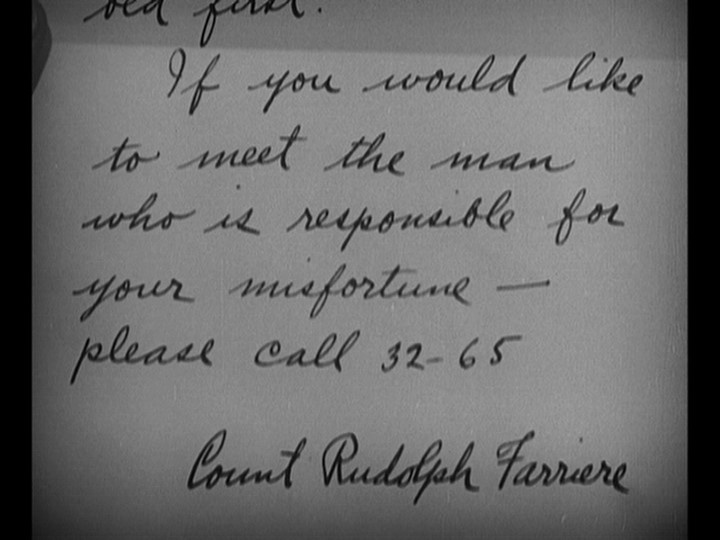 first.
If you would like
to meet the man
who is responsible for
your misfortune —
please call 32-65
Count Rudolph Farriere